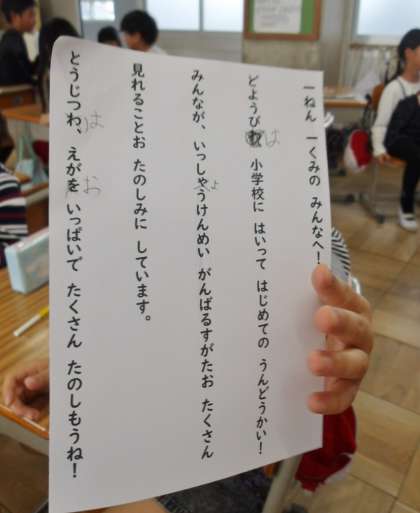 一ねん 一くみの みんなへ!
どようび は 小学校に はいって はじめての うんどうかい!
みんなが、いっしゃうけんめい がんばるすがたお たくさん
ょ
見れることお たのしみに しています。
とうじつわ、えがを いっぱいで たくさん たのしもうね!
は
お